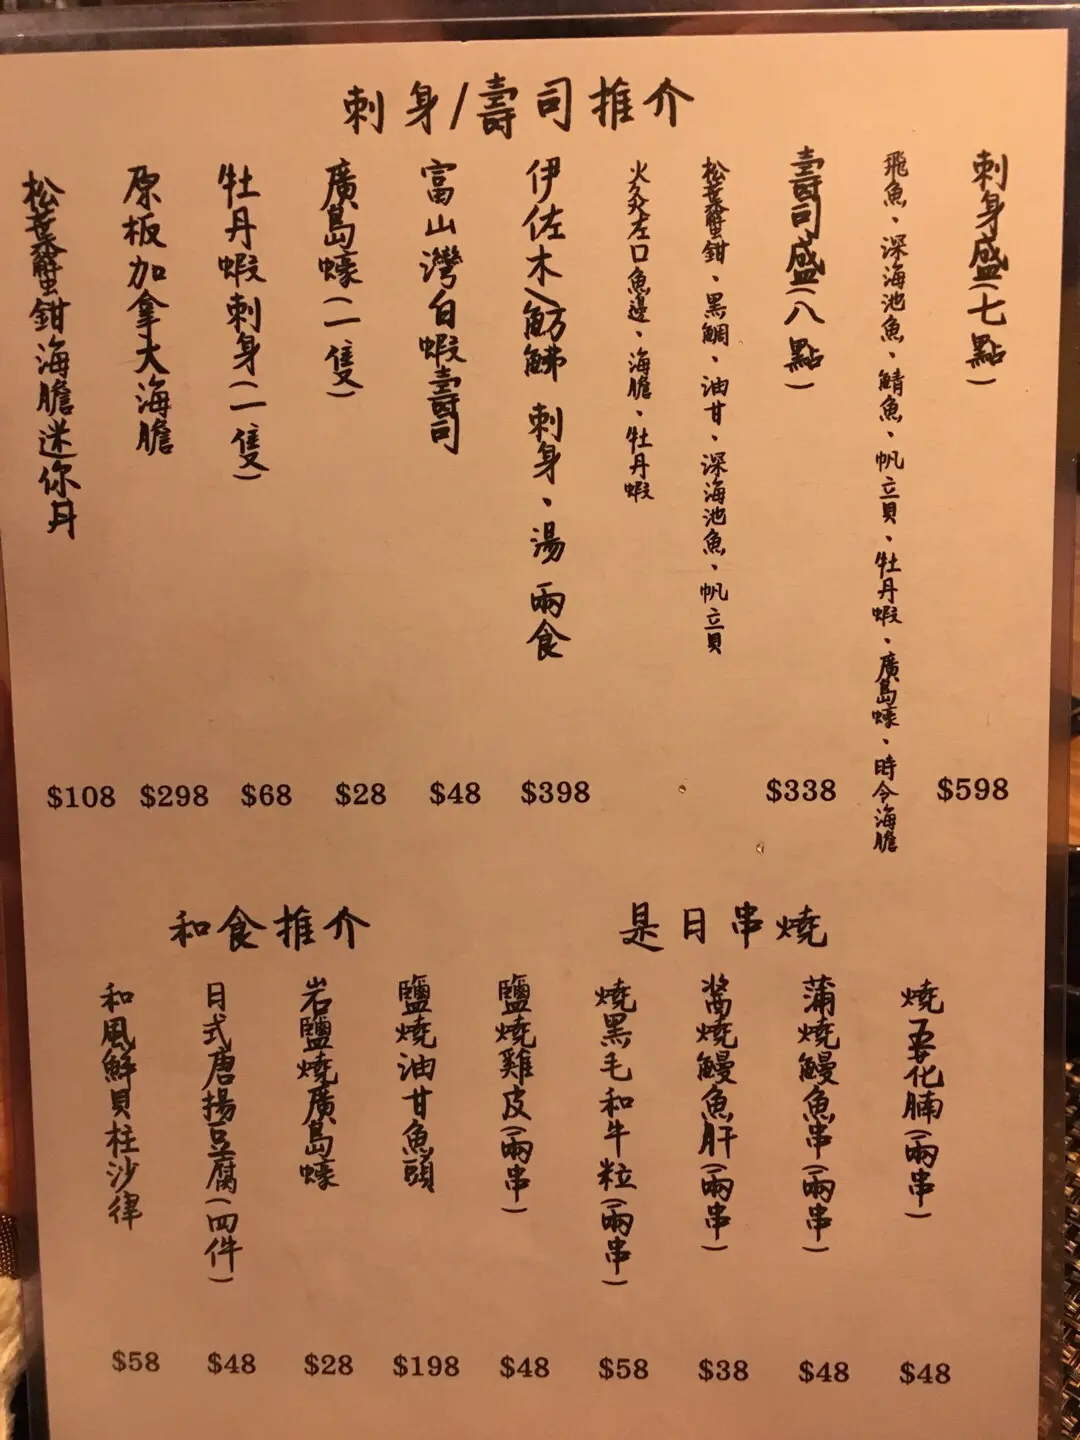 刺身/壽司推介
刺身盛(七點)
飛魚、深海池魚、鯖魚、帆立貝、牡丹蝦、廣島蠔、時令海膽
$598
壽司盛(八點)
$338
松葉蟹鉗、黑鯛、油甘、深海池魚、帆立貝
火炙左口魚邊、海膽、牡丹蝦
伊佐木/魴鮄 刺身、湯 兩食
$398
富山灣白蝦壽司
$48
廣島蠔(一隻)
$28
牡丹蝦刺身(一隻)
$68
原板加拿大海膽
$298
松葉蟹鉗海膽迷你丼
$108
是日串燒
燒安化腩(兩串)
$48
蒲燒鰻魚串(兩串)
$48
醬燒鰻魚肝(兩串)
$38
燒黑毛和牛粒(兩串)
$58
鹽燒雞皮(兩串)
$48
和食推介
鹽燒油甘魚頭
$198
岩鹽燒廣島蠔
$28
日式唐揚豆腐(四件)
$48
和風鮮貝柱沙律
$58